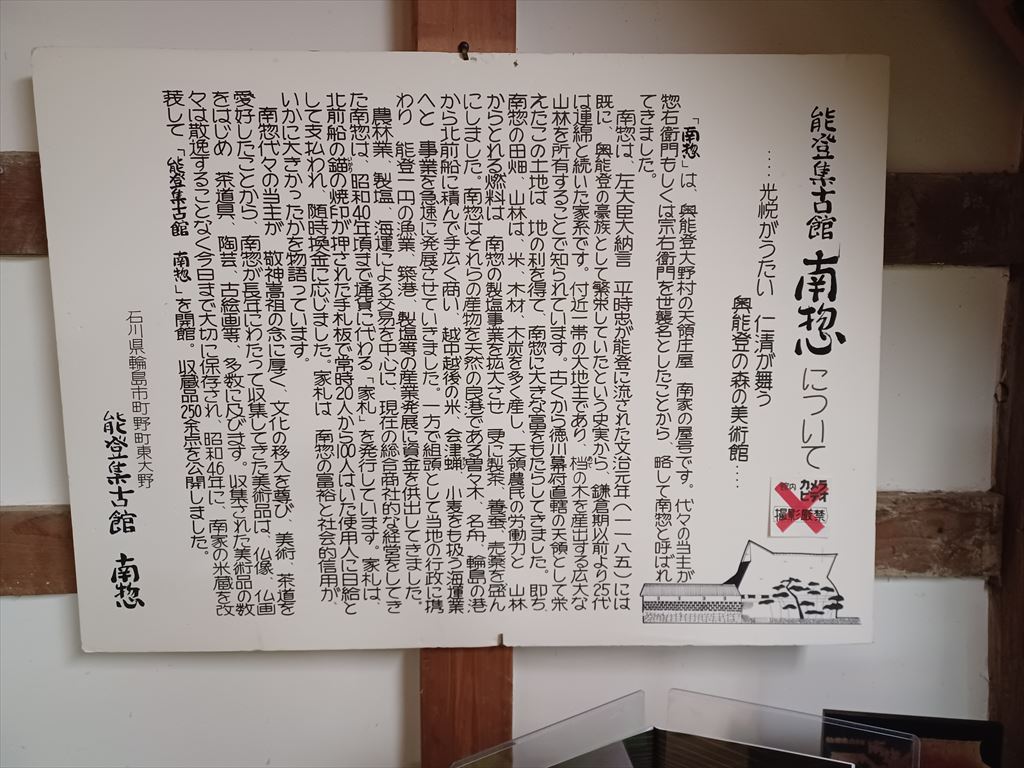 能登集古館 南惣 について
…光悦がうたい 仁清が舞う
奥能登の森の美術館…
館内 カメラ ビデオ
撮影厳禁
「南惣」は、奥能登大野村の天領庄屋 南家の屋号です。代々の当主が
惣右衛門もしくは宗右衛門を世襲名としたことから、略して南惣と呼ばれ
てきました。
南惣は、左大臣大納言 平時忠が能登に流された文治元年(一一八五)には
既に、奥能登の豪族として繁栄していたという史実から、鎌倉期以前より25代
は連綿と続いた家系です。付近一帯の大地主であり、档の木を産出する広大な
山林を所有することで知られています。古くから徳川幕府直轄の天領として栄
えたこの土地は、地の利を得て、南惣に大きな富をもたらしてきました。即ち
南惣の田畑、山林は、米、木材、木炭を多く産し、天領農民の労働力と 山林
からとれる燃料は 南惣の製塩事業を拡大させ 更に製茶、養蚕、売薬を盛ん
にしました。南惣はそれらの産物を天然の良港である曽々木、名舟、輪島の港
から北前船に積んで手広く商い、越中越後の米、会津蝋、小麦をも扱う海運業
へと 事業を急速に発展させていきました。一方で組頭として当地の行政に携
わり 能登一円の漁業、築港、製塩等の産業発展に資金を供出してきました。
農林業、製塩、海運による交易を中心に、現在の総合商社的な経営をしてき
た南惣は、昭和40年頃まで通貨に代わる「家札」を発行しています。家札は、
北前船の錨の焼印が押された手札板で常時20人から100人はいた使用人に日給と
して支払われ 随時換金に応じました。家札は 南惣の富裕と社会的信用が、
いかに大きかったかを物語っています。
南惣代々の当主が 敬神崇祖の念に厚く、文化の移入を尊び、美術、茶道を
愛好したことから、南惣が長年にわたって収集してきた美術品は、仏像、仏画
をはじめ 茶道具、陶芸、古絵画等、多数に及びます。収集された美術品の数
々は散逸することなく今日まで大切に保存され、昭和46年に、南家の米蔵を改
装して 「能登集古館 南惣」を開館。収蔵品250余点を公開しました。
石川県輪島市町野町東大野
能登集古館 南惣